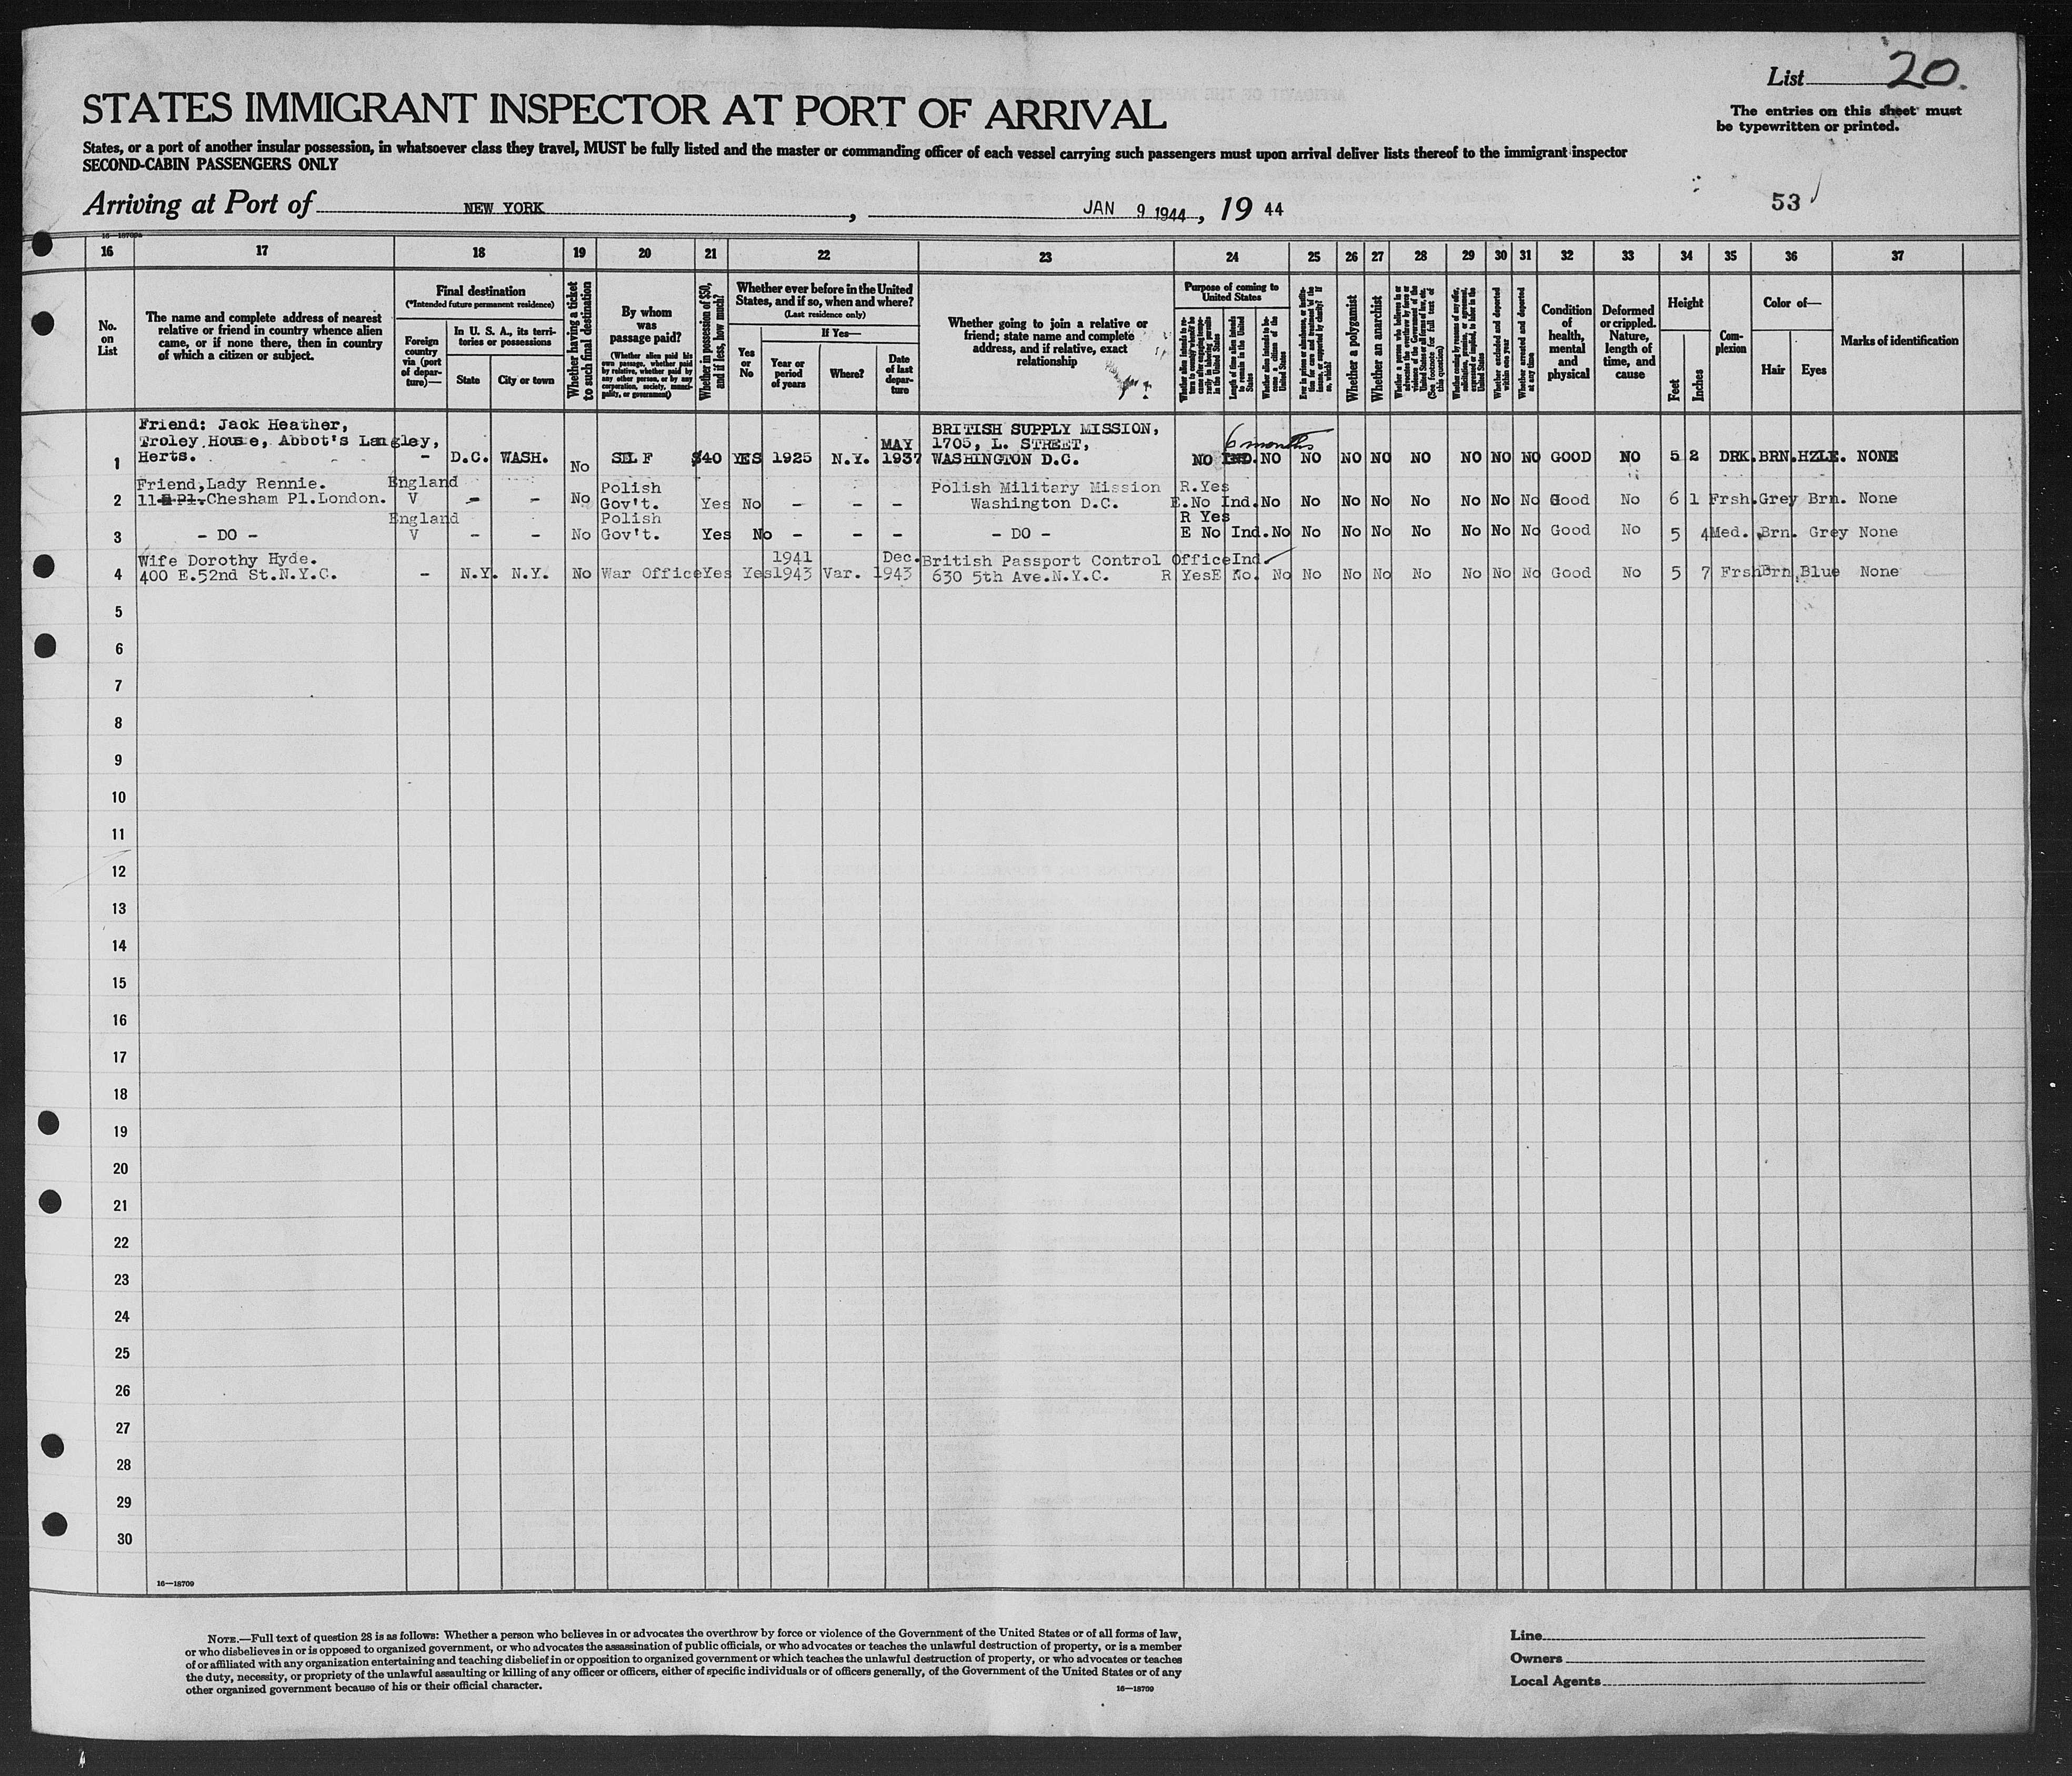 List 20.
The entries on this sheet must
be typewritten or printed.
STATES IMMIGRANT INSPECTOR AT PORT OF ARRIVAL
States, or a port of another insular possession, in whatsoever class they travel, MUST be fully listed and the master or commanding officer of each vessel carrying such passengers must upon arrival deliver lists thereof to the immigrant inspector
SECOND-CABIN PASSENGERS ONLY
Arriving at Port of NEW YORK, JAN 9 1944, 19 44
53
16 17 18 19 20 21 22 23 24 25 26 27 28 29 30 31 32 33 34 35 36 37
No. on List
The name and complete address of nearest
relative or friend in country whence alien
came, or if none there, then in country
of which a citizen or subject.
Final destination
(*Intended future permanent residence)
Foreign country via (port of departure)—
In U. S. A., its territories or possessions
State
City or town
Whether having a ticket to such final destination
By whom was passage paid?
(Whether alien paid his own passage, whether paid by relative, whether paid by any other person, or by any corporation, society, municipality, or government)
Whether in possession of $50, and if less, how much?
Whether ever before in the United
States, and if so, when and where?
(Last residence only)
Yes or No
If Yes—
Year or period of years
Where?
Date of last departure
Whether going to join a relative or
friend; state name and complete
address, and if relative, exact
relationship
Purpose of coming to United States
Length of time alien intends to remain in the United States
Whether alien intends to become a citizen of the United States
Whether a polygamist
Whether an anarchist
Whether excluded and deported within one year
Whether arrested and deported at any time
Condition of health, mental and physical
Deformed or crippled. Nature, length of time, and cause
Height
Feet
Inches
Complexion
Color of—
Hair
Eyes
Marks of identification
Friend: Jack Heather,
Troley House, Abbot's Langley,
Herts.
1 – D.C. WASH. No SELF $40 YES 1925 N.Y. MAY 1937 BRITISH SUPPLY MISSION,
1705, L. STREET,
WASHINGTON D.C. NO IND. 6 months NO NO NO NO NO NO NO NO GOOD NO 5 2 DRK. BRN. HZLE. NONE
Friend,Lady Rennie.
2 11 Pl. Chesham Pl.London. England V – – No Polish Gov't. Yes No – – – Polish Military Mission
Washington D.C. R.Yes E.No Ind. No No No No No No No No Good No 6 1 Frsh. Grey Brn. None
3 – DO – England V – – No Polish Gov't. Yes No – – – – DO – R Yes E No Ind. No No No No No No No No Good No 5 4 Med. Brn. Grey None
Wife Dorothy Hyde.
4 400 E.52nd St.N.Y.C. – N.Y. N.Y. No War Office Yes Yes 1941 1943 Var. Dec. 1943 British Passport Control Office
630 5th Ave.N.Y.C. R Yes E No. Ind. No No No No No No No No Good No 5 7 Frsh Brn Blue None
5
6
7
8
9
10
11
12
13
14
15
16
17
18
19
20
21
22
23
24
25
26
27
28
29
30
16—18709
NOTE.—Full text of question 28 is as follows: Whether a person who believes in or advocates the overthrow by force or violence of the Government of the United States or of all forms of law,
or who disbelieves in or is opposed to organized government, or who advocates the assassination of public officials, or who advocates or teaches the unlawful destruction of property, or is a member
of or affiliated with any organization entertaining and teaching disbelief in or opposition to organized government or which teaches the unlawful destruction of property, or who advocates or teaches
the duty, necessity, or propriety of the unlawful assaulting or killing of any officer or officers, either of specific individuals or of officers generally, of the Government of the United States or of any
other organized government because of his or their official character.
16—18709
Line
Owners
Local Agents